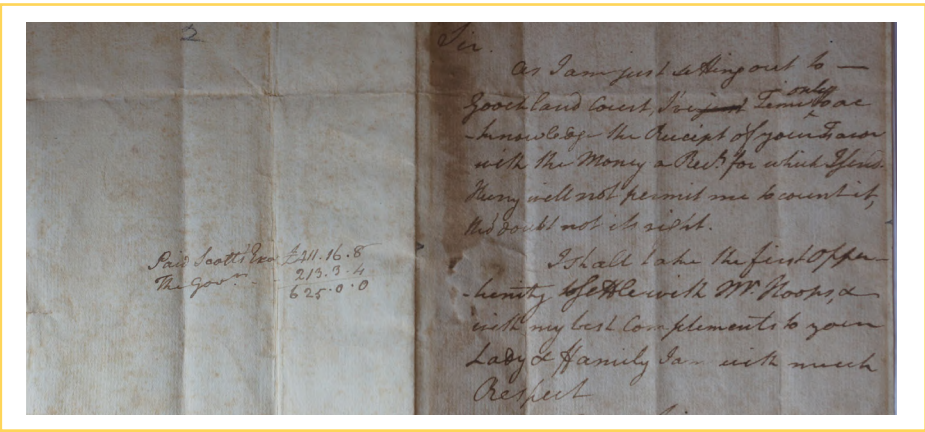 2
Paid Scotts Exa £411.16.8
The Govr. 213.3.4
625.0.0
Sir.
as I am just setting out to —
Goochland Court, I've just Time only to ac
-knowledge the Receipt of your Favor
with the Money a Rect. for which I send.
Hurry will not permit me to count it,
tho' doubt not its right.
I shall take the first Oppor-
-tunity to settle with Mr. Hoops, &
with my best Complements to your
Lady & Family I am with much
Respect